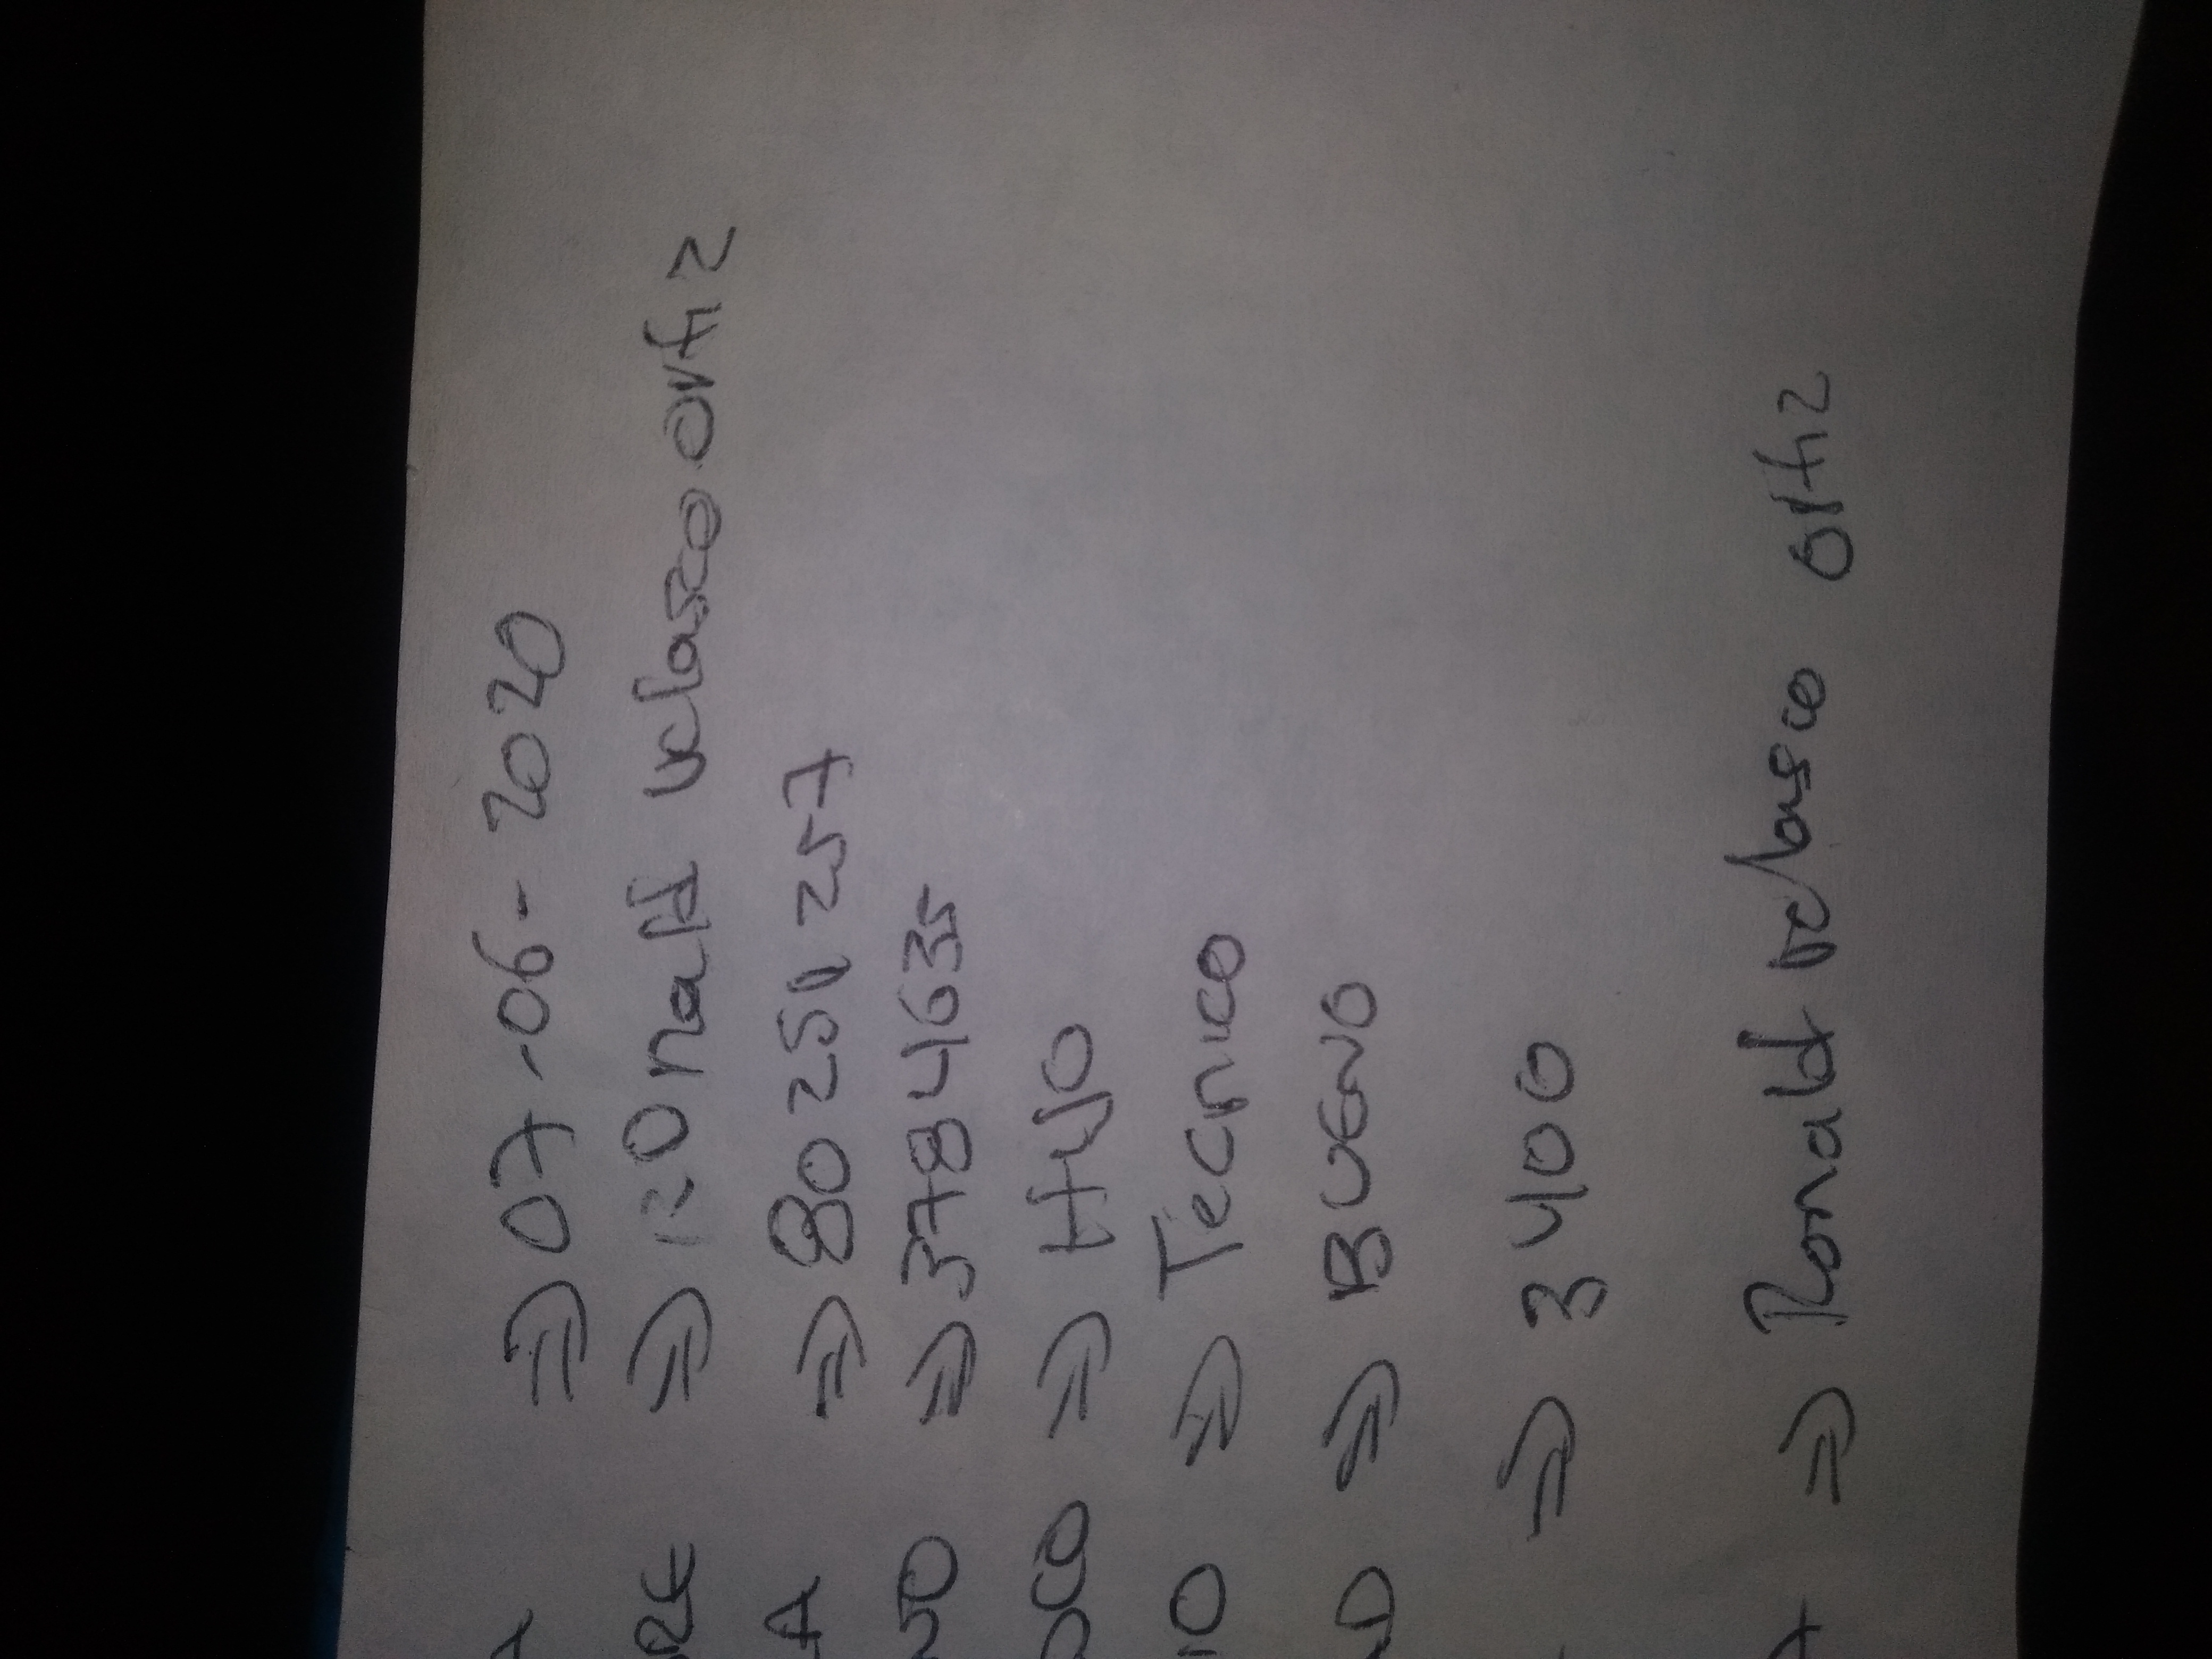 A ⇒ 07-06-2020
RE ⇒ Ronald velasco ortiz
A ⇒ 80251257
NO ⇒ 3784635
SCO ⇒ HIJO
IO ⇒ Tecnico
AD ⇒ BUENO
⇒ 3400
A ⇒ Ronald velasco ortiz